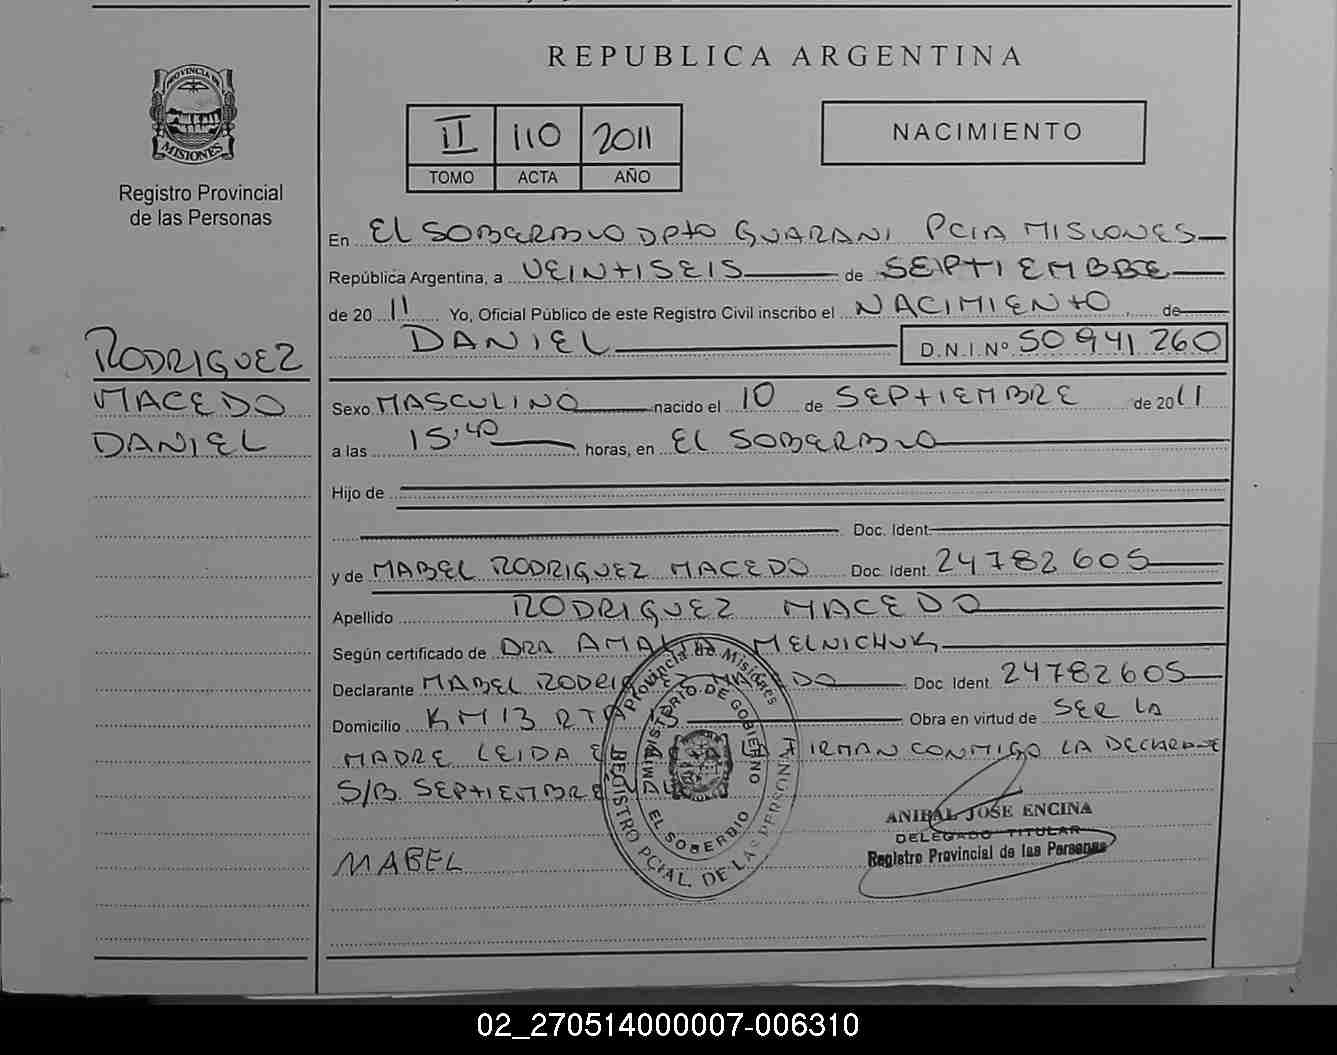 REPUBLICA ARGENTINA
PROVINCIA DE
MISIONES
Registro Provincial
de las Personas
II 110 2011
TOMO ACTA AÑO
NACIMIENTO
En EL SOBERBIO DPTO GUARANI PCIA MISIONES
República Argentina, a VEINTISEIS de SEPTIEMBRE
de 20 11 Yo, Oficial Público de este Registro Civil inscribo el NACIMIENTO, de
DANIEL D.N.I.Nº 50941260
RODRIGUEZ
MACEDO
DANIEL
Sexo MASCULINO nacido el 10 de SEPTIEMBRE de 2011
a las 15:40 horas, en EL SOBERBIO
Hijo de
Doc. Ident.
y de MABEL RODRIGUEZ MACEDO Doc. Ident. 24782605
Apellido RODRIGUEZ MACEDO
Según certificado de DRA AMALIA MELNICHUK
Declarante MABEL RODRIGUEZ MACEDO Doc. Ident. 24782605
Domicilio KM 13 RTA Obra en virtud de SER LA
MADRE LEIDA LA FIRMAN CONMIGO LA DECLARANTE
S/B. SEPTIEMBRE VALE
MABEL
Provincia de Misiones
MINISTERIO DE GOBIERNO
EL SOBERBIO
REGISTRO PCIAL. DE LAS PERSONAS
ANIBAL JOSE ENCINA
DELEGADO TITULAR
Registro Provincial de las Personas
02_270514000007-006310